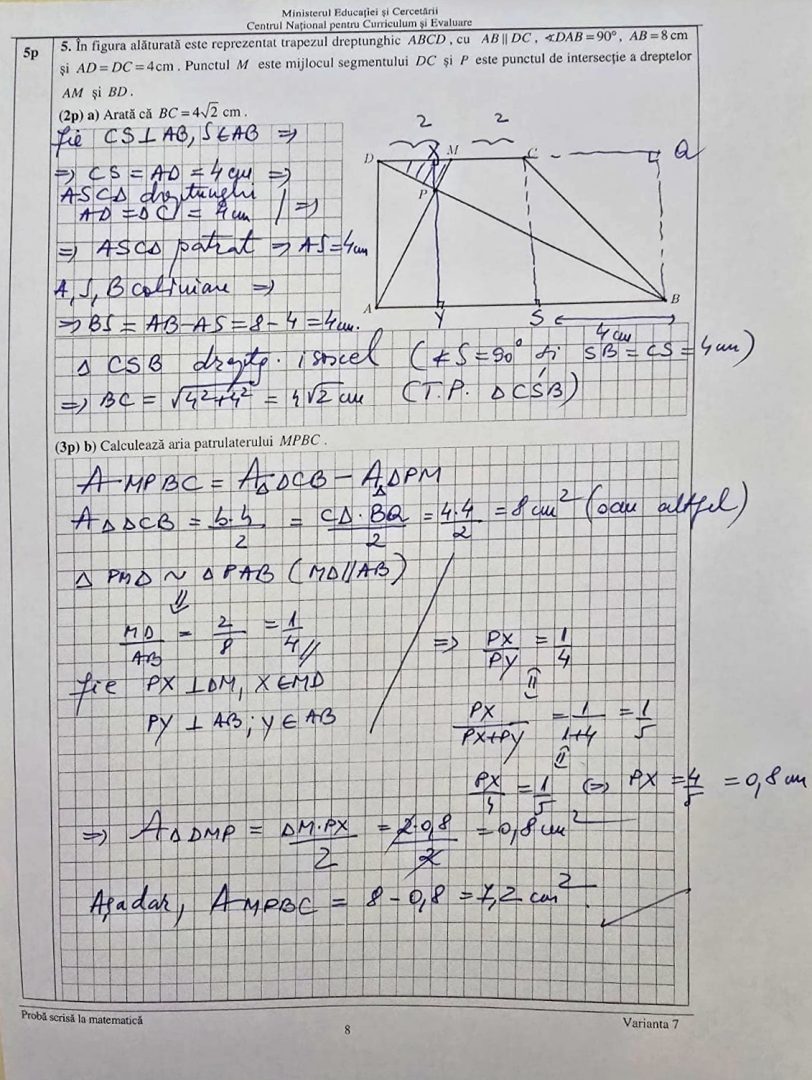 Ministerul Educației și Cercetării
Centrul Național pentru Curriculum și Evaluare
5p
5. În figura alăturată este reprezentat trapezul dreptunghic ABCD, cu AB ∥ DC, ∢DAB = 90°, AB = 8 cm
și AD = DC = 4 cm. Punctul M este mijlocul segmentului DC și P este punctul de intersecție a dreptelor
AM și BD.
(2p) a) Arată că BC = 4√2 cm.
fie CS⊥AB, S∈AB ⇒
⇒ CS = AD = 4 cm ⇒
ASCD dreptunghi
AD = DC = 4 cm | ⇒
⇒ ASCD patrat ⇒ AS = 4 cm
A, S, B coliniare ⇒
⇒ BS = AB − AS = 8 − 4 = 4 cm.
2 2
D X M C Q
P
A Y S B
4 cm
Δ CSB drept. isoscel (∢S = 90° și SB = CS = 4 cm)
⇒ BC = √4²+4² = 4√2 cm (T.P. ΔCSB)
(3p) b) Calculează aria patrulaterului MPBC.
A MPBC = AΔDCB − AΔDPM
AΔDCB = b·h/2 = CD·BQ/2 = 4·4/2 = 8 cm² (sau altfel)
Δ PMD ~ Δ PAB (MD∥AB)
⇓
MD/AB = 2/8 = 1/4 ⇒ PX/PY = 1/4
fie PX ⊥ DM, X∈MD
⇓
PY ⊥ AB; Y∈AB PX/PX+PY = 1/1+4 = 1/5
⇓
PX/4 = 1/5 ⇔ PX = 4/5 = 0,8 cm
⇒ AΔDMP = DM·PX/2 = 2·0,8/2 = 0,8 cm²
Așadar, A MPBC = 8 − 0,8 = 7,2 cm²
Probă scrisă la matematică
8
Varianta 7